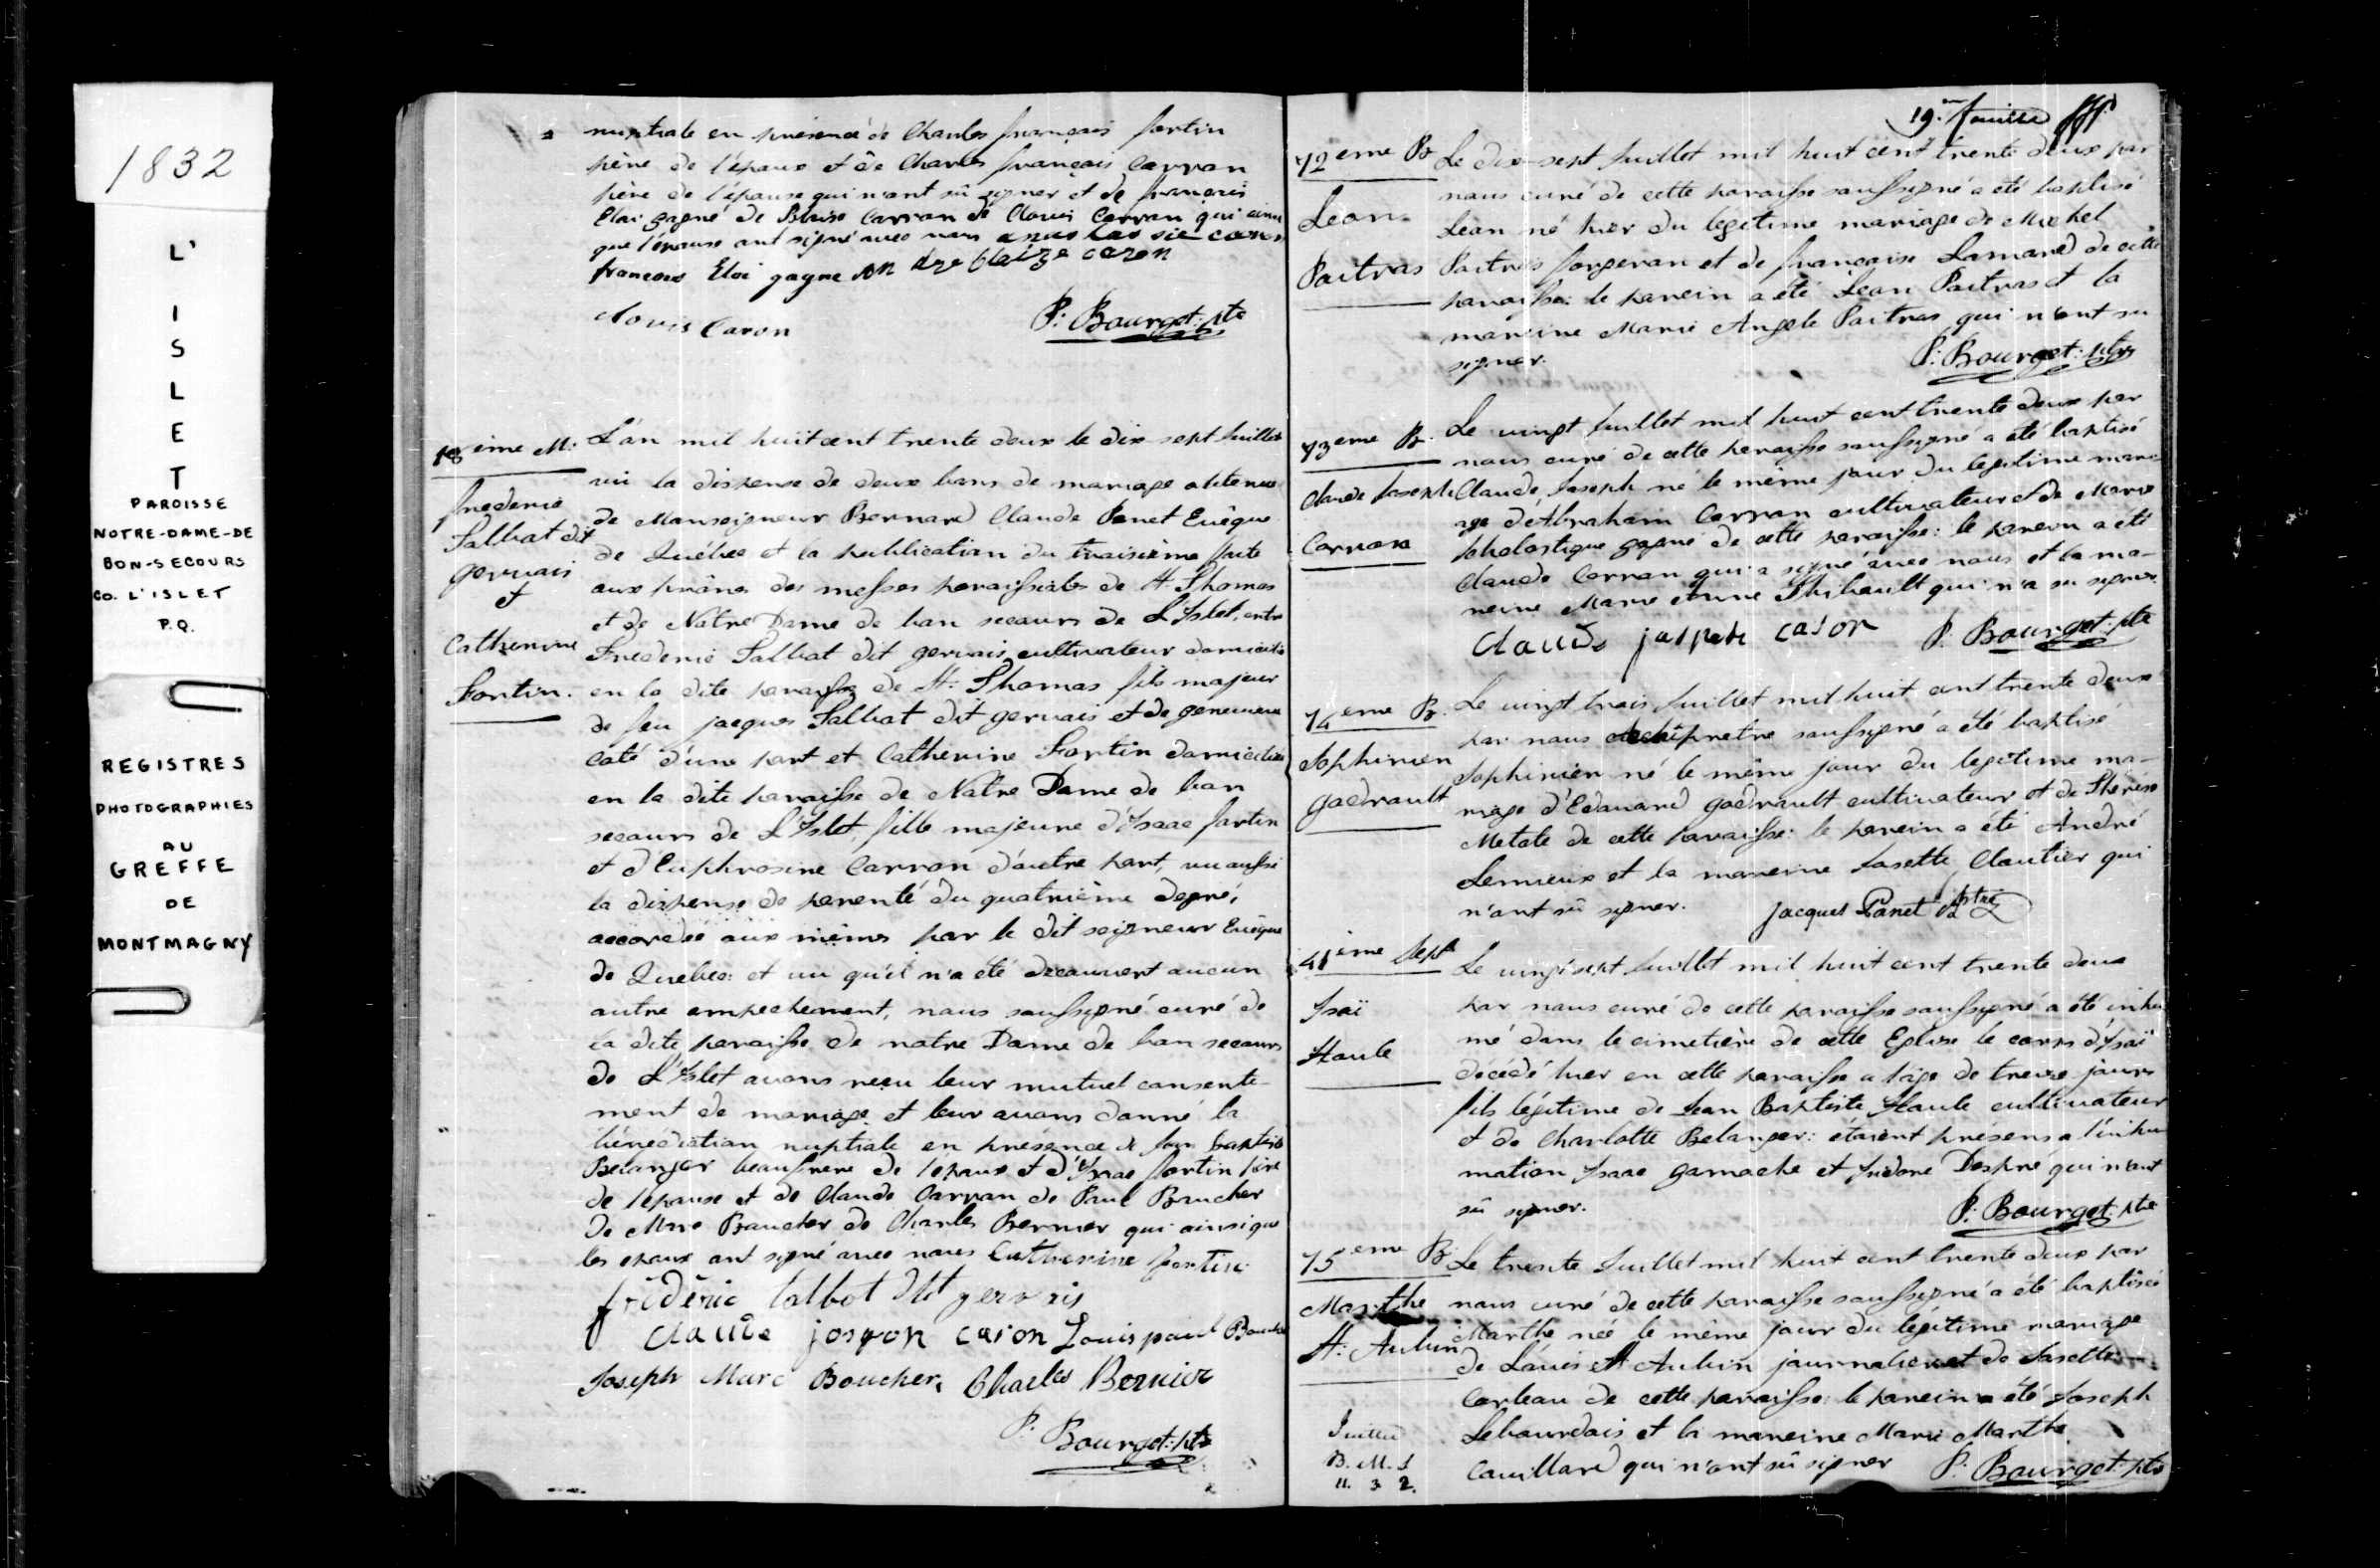 1832
L'
I
S
L
E
T
PAROISSE
NOTRE-DAME-DE
BON-SECOURS
CO. L'ISLET
P.Q.
REGISTRES
PHOTOGRAPHIES
AU
GREFFE
DE
MONTMAGNY
nuptiale en présence de Charles français fortin
père de l'époux et de Charles français Carron
père de l'épouse qui n'ont sû signer et de français
Eloi gagné de Blaise Carron de Clovis Carron qui ainsi
que l'épouse ont signé avec nous anastasie caron
francois Eloi gagne blaize caron
clovis Caron P: Bourget: ptre
18ième M.
frederic
Talbot dit
gervais
et
Catherine
Fortin.
L'an mil huit cent trente deux le dix-sept Juillet
vu la dispense de deux bans de mariage obtenue
de Monseigneur Bernard Claude Panet Evêque
de Québec et la publication du troisième faite
aux prônes des messes paroissiales de St. Thomas
et de Notre Dame de bon secours de L'Islet, entre
Frederic Talbot dit gervais cultivateur domicilié
en la dite paroisse de St. Thomas fils majeur
de feu jacques Talbot dit gervais et de genevieve
Coté d'une part et Catherine Fortin domiciliée
en la dite paroisse de Notre Dame de bon
secours de L'Islet, fille majeure d'Isaac fortin
et d'Euphrosine Carron d'autre part, vu aussi
la dispense de parenté du quatrième degré,
accordée aux mêmes par le dit seigneur Evêque
de Québec: et vu qu'il n'a été decouvert aucun
autre empechement, nous soussigné curé de
la dite paroisse de notre Dame de bon secours
de L'Islet avons reçu leur mutuel consente-
ment de mariage et leur avons donné la
bénédiction nuptiale en présence de Jean baptiste
Belanger beaufrere de l'époux et d'Isaac fortin père
de l'épouse et de Claude Carron de Paul Boucher
de Marc Boucher de Charles Bernier qui ainsi que
les epoux ont signé avec nous Catherine fortin
frédéric talbot dit gervais
Claude joseph caron Louis paul Boucher
Joseph Marc Boucher. Charles Bernier
P: Bourget: ptre
19.me feuille
72eme B.
Leon
Poitras
Le dix-sept Juillet mil huit cent trente deux par
nous curé de cette paroisse soussigné a été baptisé
Léon né hier du legitime mariage de Michel
Poitras forgeron et de françoise Lamand de cette
paroisse: le parein a été Léon Poitras et la
mareine Marie Angele Poitras qui n'ont su
signer. P: Bourget: ptre
73eme B.
Claude Joseph
Carron
Le vingt Juillet mil huit cent trente deux par
nous curé de cette paroisse soussigné a été baptisé
Claude Joseph né le même jour du legitime mari-
age d'Abraham Carron cultivateur et de Marie
Scholastique gagné de cette paroisse: le parein a été
Claude Carron qui a signé avec nous et la ma-
reine Marie Anne Thibault qui n'a su signer.
Claude joseph caron P. Bourget: ptre
74eme B.
Sophinien
gaudrault
Le vingt trois Juillet mil huit cent trente deux
par nous Archiprêtre soussigné a été baptisé
Sophinien né le même jour du legitime ma-
riage d'Edouard gaudrault cultivateur et de Thérèse
Metote de cette paroisse: le parein a été André
Lemieux et la mareine Josette Cloutier qui
n'ont sû signer. Jacques Panet Ptre
41ième Sept
Isaï
Hante
Le vingt sept Juillet mil huit cent trente deux
par nous curé de cette paroisse soussigné a été inhu-
mé dans le cimetière de cette Eglise le corps d'Isaï
décédé hier en cette paroisse a l'age de treize jours
fils légitime de Jean Baptiste Hante cultivateur
et de Charlotte Belanger: étaient présens a l'inhu-
mation Isaac gamache et Isidore Després qui n'ont
sû signer. P: Bourget: ptre
75eme B.
Marthe
St: Aubin
Le trente Juillet mil huit cent trente deux par
nous curé de cette paroisse soussigné a été baptisée
Marthe née le même jour du légitime mariage
de Louis St Aubin journalier et de Josette
Corbeau de cette paroisse: le parein a été Joseph
Lebourdais et la mareine Marie Marthe
Couillard qui n'ont sû signer P: Bourget: ptre
Juillet
B. M. S
11. 3 2.